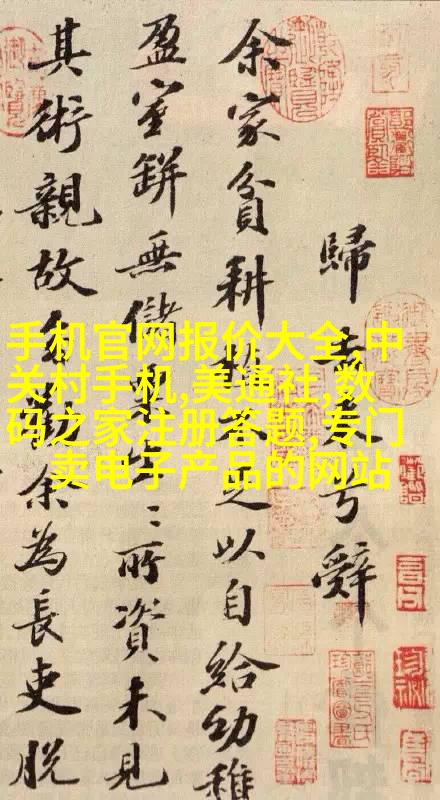 歸去來兮辭
余家貧耕植不足以自給幼稚
盈室缾無儲粟生〻所資未見
其術親故多勸余為長吏脫
手机官网报价大全,中
关村手机,美通社,数
码之家注册答题,专门
卖电子产品的网站